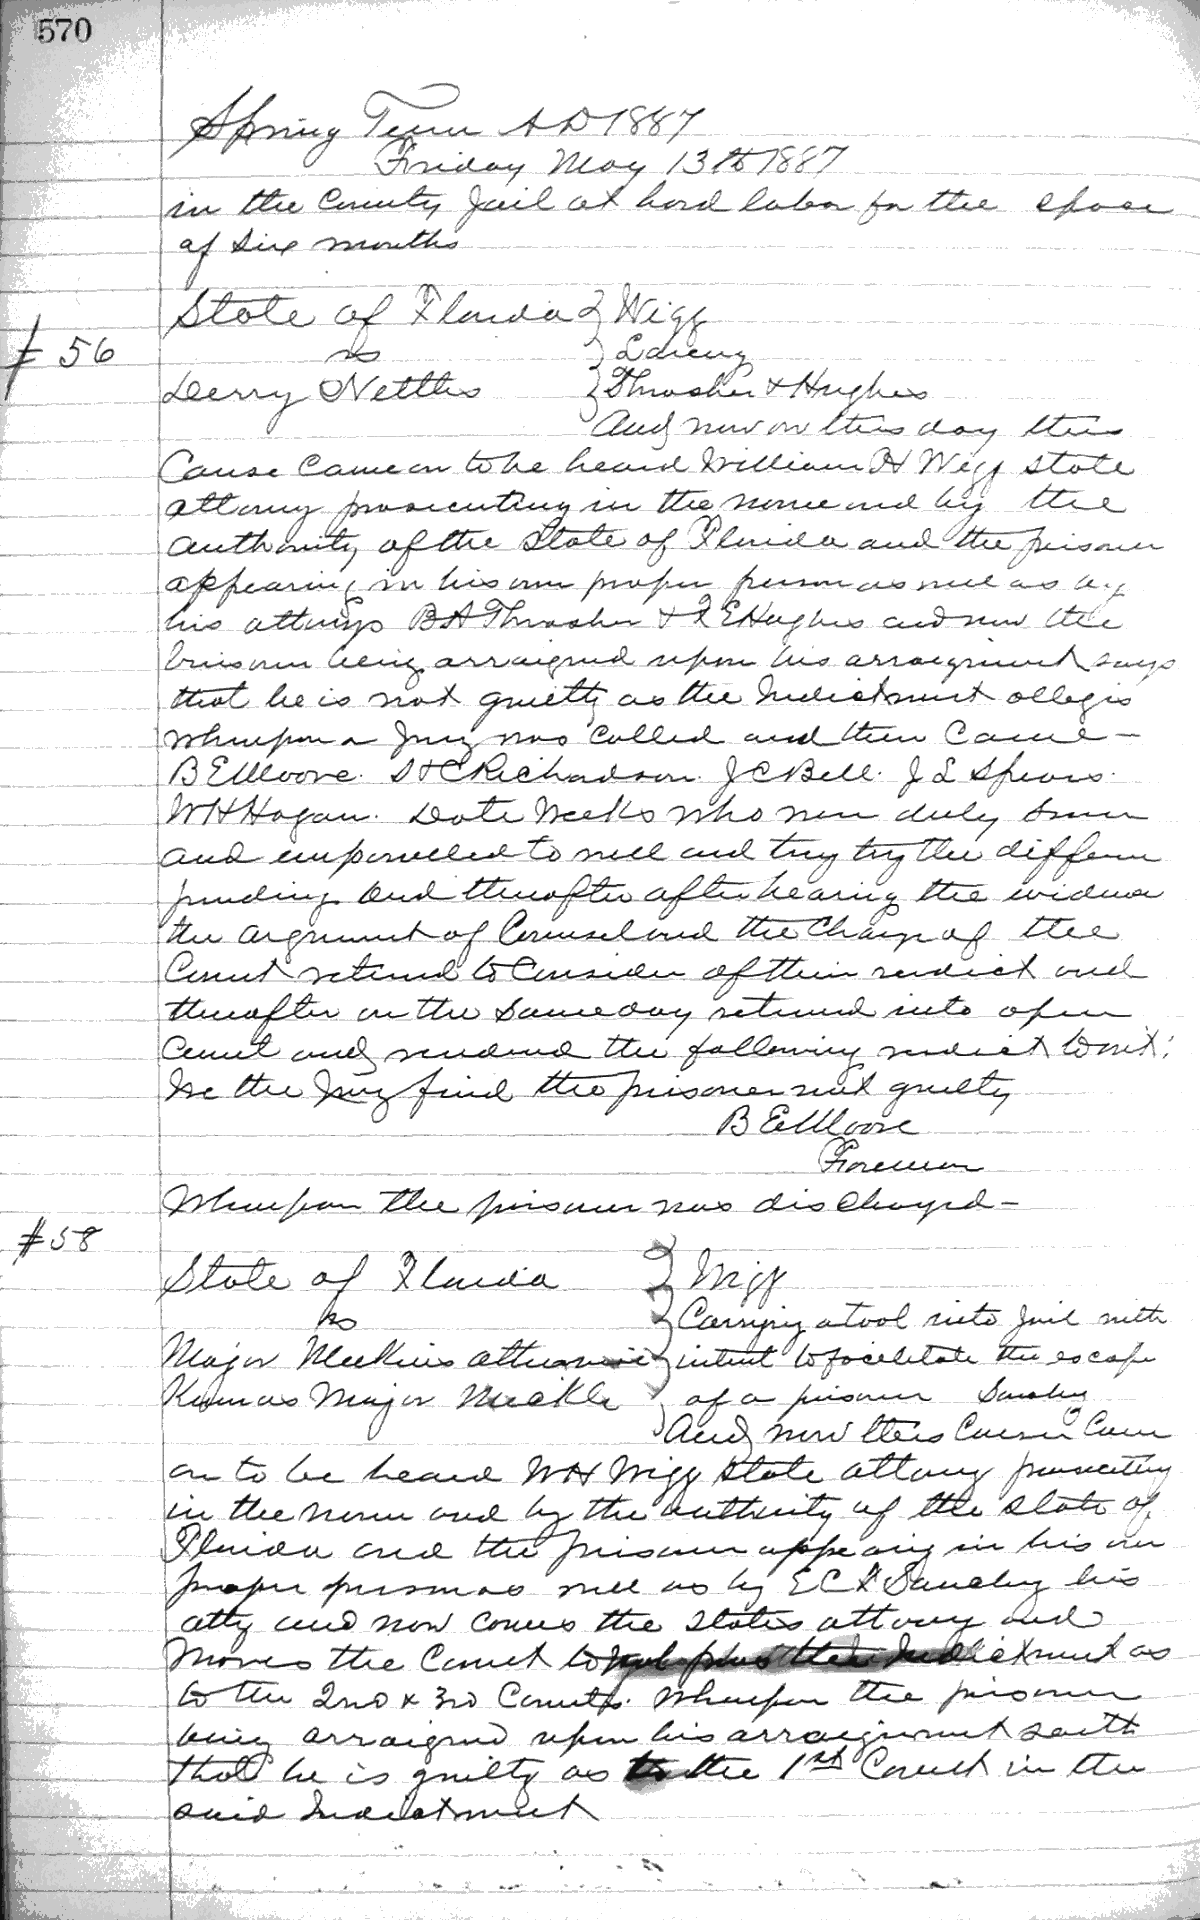 570
Spring Term AD 1887
Friday May 13th 1887
in the County Jail at hard labor for the space
of Six months
State of Florida } Wigg
# 56 vs } Larceny
Derry Nettles } Thrasher & Hughes
And now on this day this
Cause Came on to be heard William H Wigg State
attorny prosecuting in the name and by the
authority of the State of Florida and the prisoner
appearing in his own proper person as well as by
his attorneys B A Thrasher & F E Hughes and now the
prisoner being arraigned upon his arraignment says
that he is not guilty as the Indictment alleges
Whereupon a Jury was Called and then Came –
B E Moore. S H C Richardson. J C Bell. J L Spears.
W H Hogan. Date Weeks who were duly sworn
and empanelled to well and try try the differen
pending. And thereafter after hearing the evidence
the argument of Counsel and the Charge of the
Court retired to Consider of their verdict and
thereafter on the same day returned into open
Court and rendered the following verdict to wit:
We the Jury find the prisoner not guilty
B E Moore
Foreman
Whereupon the prisoner was discharged –
#58
State of Florida } Wigg
vs } Carrying a tool into Jail with
Major Meekins otherwise } intent to facilitate the escape
Known as Major Meekle } of a prisoner Sanchez
And now this Cause Came
on to be heard W H Wigg State attorny prosecuting
in the name and by the authority of the State of
Florida and the prisoner appearing in his own
proper person as well as by E C F Sanchez his
atty and now comes the States attorny and
Moves the Court to nol pros the Indictment as
to the 2nd & 3rd Counts. Whereupon the prisoner
being arraigned upon his arraignment saith
that he is guilty as to the 1st Count in the
said Indictment